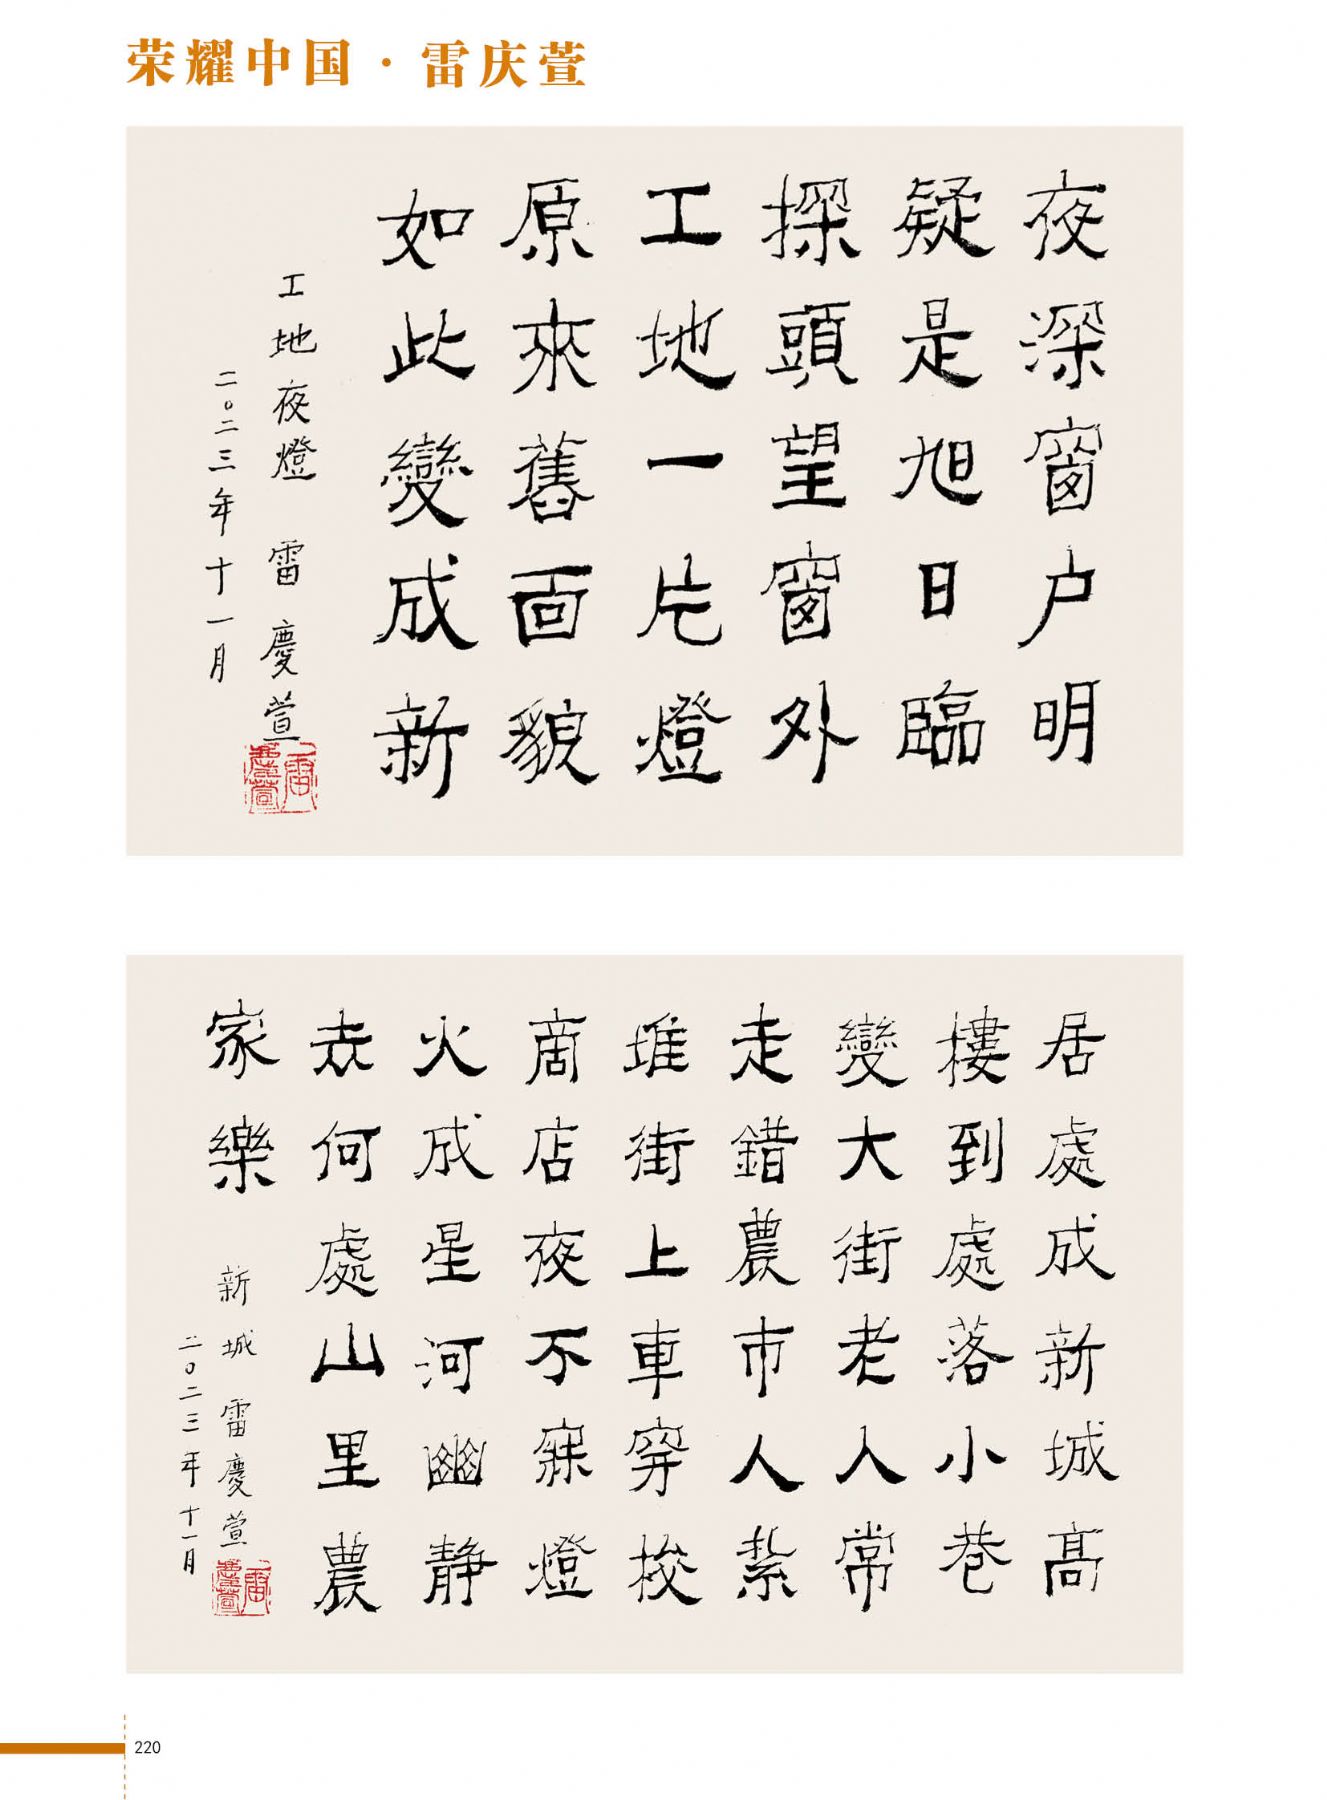 荣耀中国·雷庆萱
夜深窗户明
疑是旭日臨
探頭望窗外
工地一片燈
原來舊面貌
如此變成新
工地夜燈 雷慶萱
二〇二三年十一月
雷慶萱
居處成新城高
樓到處落小巷
變大街老人常
走錯農市人紮
堆街上車穿梭
商店夜不寐燈
火成星河幽静
去何處山里農
家樂 新城 雷慶萱
二〇二三年十一月
雷慶萱
220